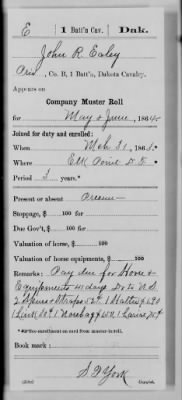 E | 1 Batt'n Cav. | Dak.
John R. Ealey
, Co. B, 1 Batt'n, Dakota Cavalry.
Appears on
Company Muster Roll
for May & June, 1864.
Joined for duty and enrolled:
When Mch 31, 186
Where Elk Point D.T.
Period 3 years.*
Present or absent
Stoppage, $ 100 for
Due Gov't, $ 100 for
Valuation of horse, $ 100
Valuation of horse equipments, $ 100
Remarks: Pay due for Horse &
Equipments 41 days. Due U.S.
2 Spurs & Straps 52¢ 1 Halter $
1 Link 30¢ 1 Nosebag 1 Lariat
*See enrollment on card from muster-in roll.
Book mark:
S D York
Copyist.